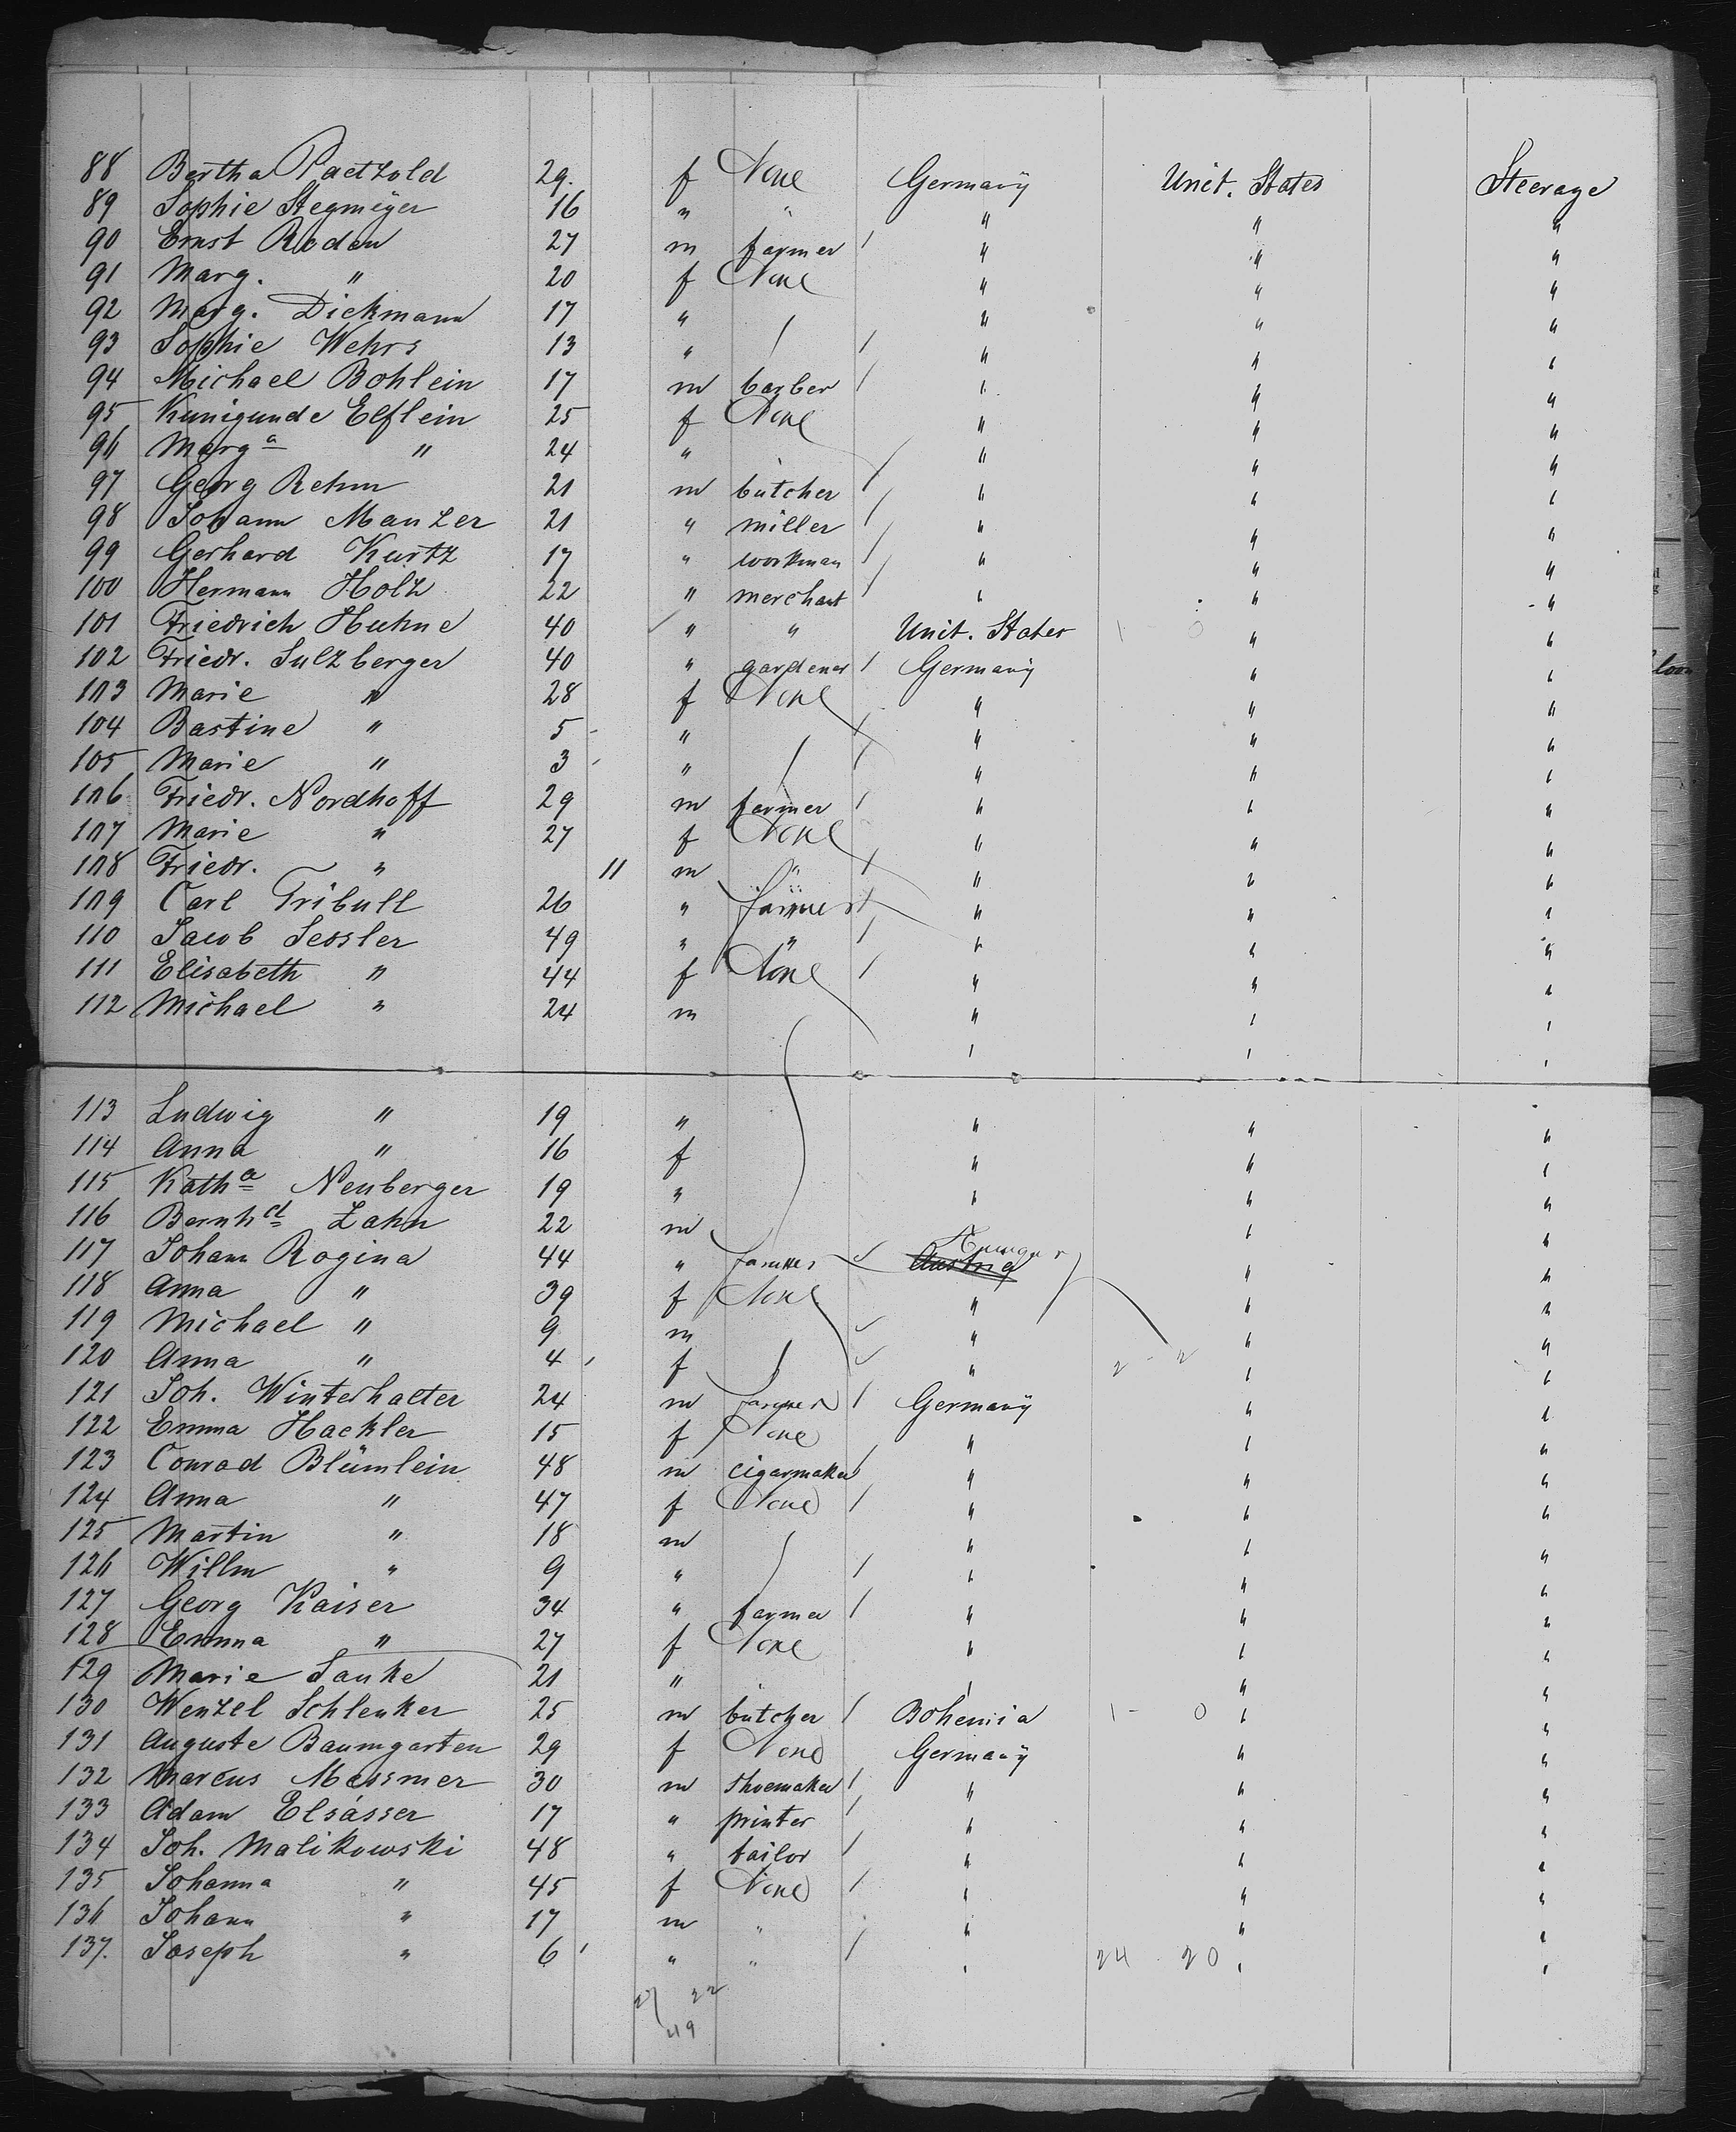 88 Bertha Paetzold 29. f None Germany Unit. States Steerage
89 Sophie Stegmeyer 16 " " " " "
90 Ernst Roden 27 m farmer / " " "
91 Marg. " 20 f None " " "
92 Marg. Dickmann 17 " " " "
93 Sophie Wehrs 13 " / " " "
94 Michael Bohlein 17 m barber / " " "
95 Kunigunde Elflein 25 f None " " "
96 Marga " 24 " " " "
97 Georg Rehm 21 m butcher / " " "
98 Johann Manzer 21 " miller / " " "
99 Gerhard Kurtz 17 " workman / " " "
100 Hermann Holz 22 " merchant / " " "
101 Friedrich Huhne 40 " " Unit. States 1 0 " "
102 Friedr. Sulzberger 40 " gardener / Germany " "
103 Marie " 28 f None " " "
104 Bastine " 5 " / " " "
105 Marie " 3 " / " " "
106 Friedr. Nordhoff 29 m farmer / " " "
107 Marie " 27 f None " " "
108 Friedr. " 11 m " / " " "
109 Carl Tribull 26 " farmer / " " "
110 Jacob Sessler 49 " " / " " "
111 Elisabeth " 44 f None / " " "
112 Michael " 24 m " " "
113 Ludwig " 19 " " " "
114 Anna " 16 f " " "
115 Katha Neuberger 19 " " " "
116 Bernhd Zahn 22 m " "
117 Johann Rogina 44 " farmer Austria " "
118 Anna " 39 f None " " "
119 Michael " 9 m " " "
120 Anna " 4 f " 2 - 2 " "
121 Joh. Winterhalter 24 m farmer / Germany " "
122 Emma Hackler 15 f None " " "
123 Conrad Blümlein 48 m cigarmaker / " " "
124 Anna " 47 f None / " " "
125 Martin " 18 m " " "
126 Willm " 9 " / " " "
127 Georg Kaiser 34 " farmer / " " "
128 Emma " 27 f None " " "
129 Marie Sanke 21 " " " "
130 Wenzel Schlenker 25 m butcher / Bohemia 1 - 0 " "
131 Auguste Baumgarten 29 f None Germany " "
132 Marcus Messmer 30 m shoemaker / " " "
133 Adam Elsässer 17 " printer / " " "
134 Joh. Malikowski 48 " tailor / " " "
135 Johanna " 45 f None / " " "
136 Johann " 17 m " " " "
137. Joseph " 6 " " / " 24 - 20 " "
27 22
49